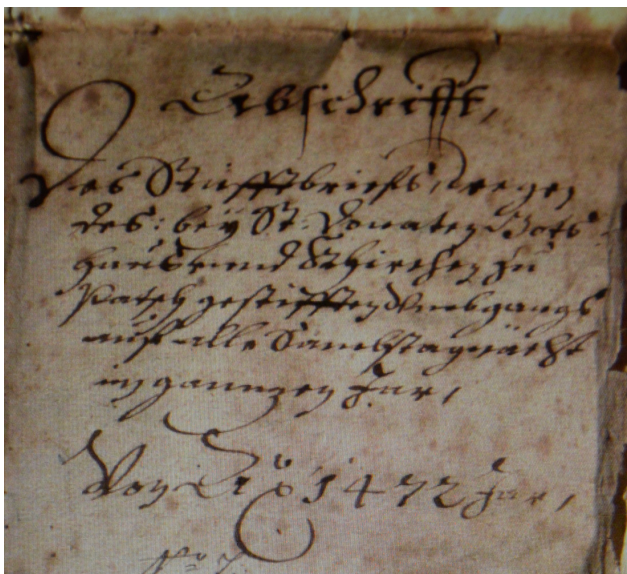 Abschrifft,
Des Stüfftbriefs, wegen
des: bey St: Donaten Gots-
haus und Khirchen zu
Patsch gestifften Umbgangs
auf alle Sambstagnächt
in gannzen Jar,
Von A͠o 1472 Jar,